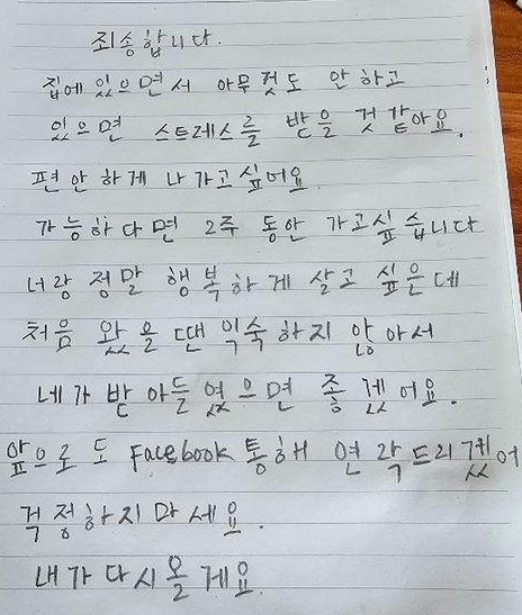 죄송합니다.
집에 있으면서 아무것도 안 하고
있으면 스트레스를 받을 것 같아요.
편안하게 나가고싶어요
가능하다면 2주 동안 가고싶습니다
너랑 정말 행복하게 살고 싶은데
처음 왔을 땐 익숙하지 않아서
네가 받아들였으면 좋겠어요.
앞으로도 Facebook 통해 연락드리겠어
걱정하지마세요.
내가 다시 올게요